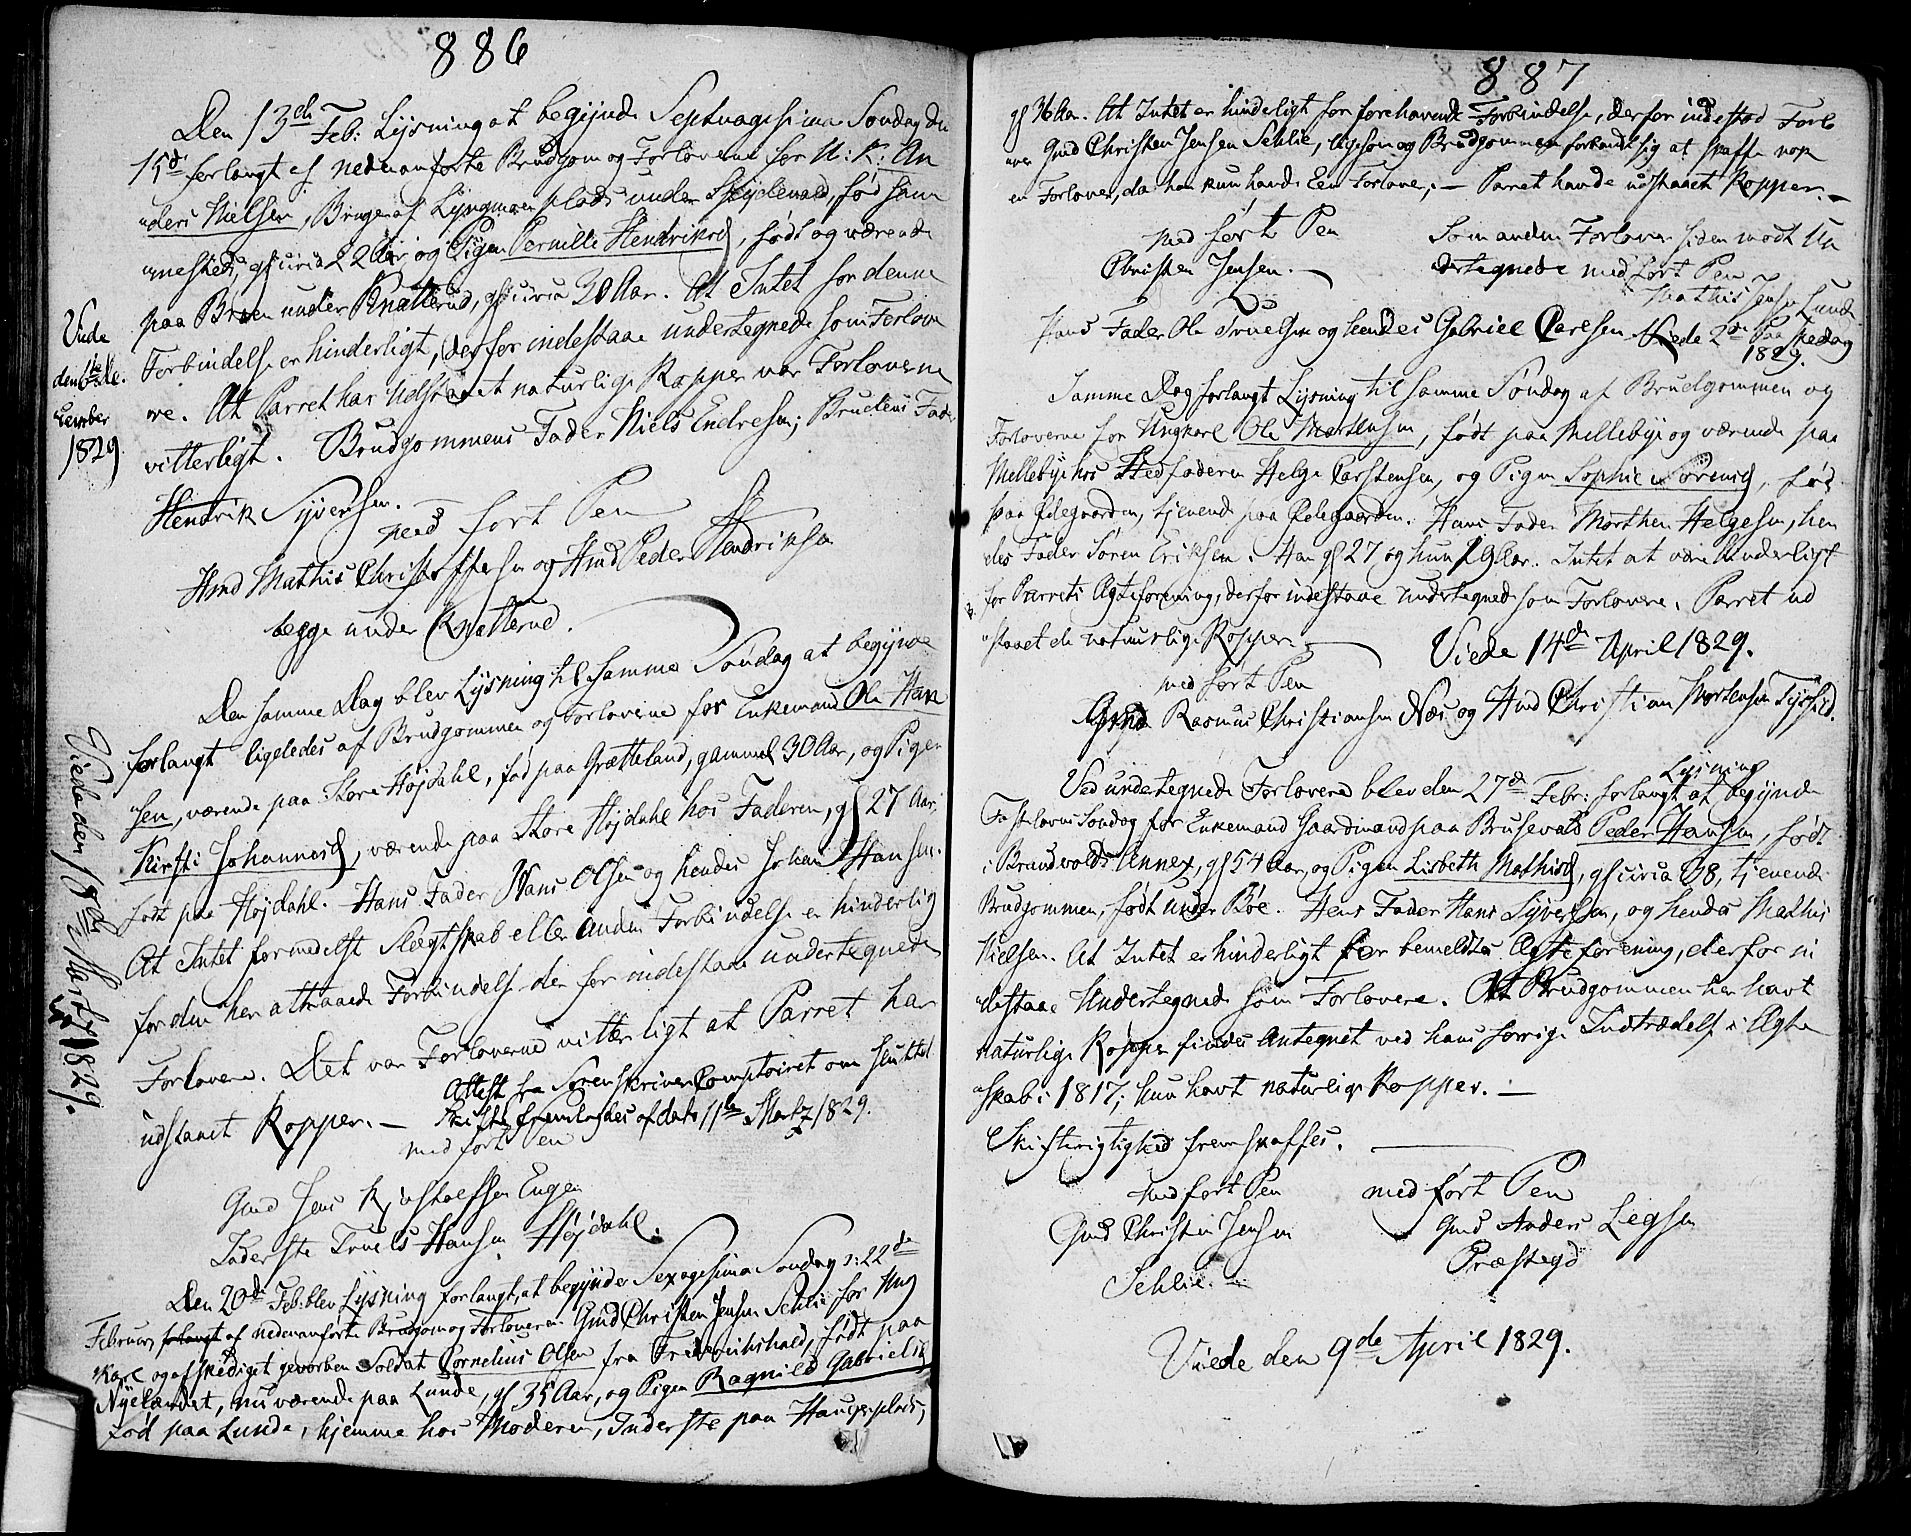 886
Den 13de Feb: Lysning at begynde Septuagesima Søndag den
15de forlangt af nedenanførte Brudgom og Forloverne for U: K: An
"ders Nielsen, Bruger af Lyngmoen plads under Skydeved, fød sam
"mesteds, gl circa 22 Aar og Pigen Pernille Hendriksd, født og værende
paa Braen under Knatterud, gl circa 30 Aar. At Intet for denne
Forbindelse er hinderligt, derfor indestaae undertegnede som Forlove
re. At Parret har Udstaaet naturlige Kopper var Forloverne
vitterligt. Brudgommens Fader Niels Endresen; Brudens Fader
Hendrik Syversen.
med ført Pen
Hmd Mathis Christoffersen og Hmd Peder Hendriksen
begge under Knatterud.
Viede
den 6te De.
cember
1829
Den samme Dag blev Lysning til samme Søndag at begynde
forlangt ligeledes af Brudgommen og Forloverne for Enkemand Ole Han
"sen, værende paa Store Højdahl, fød paa Grætteland, gammel 30 Aar, og Pigen
Kirsti Johannesd, værende paa Store Højdahl hos Faderen, gl 27 Aar,
født paa Højdahl. Hans Fader Hans Olsen og hendes Johan Hansen.
At Intet formedelst Slægtskab eller anden Forbindelse er hinderlig
for den her attraaede Forbindelse derfor indestaae undertegnede
Forlovere. Det var Forloverne vitterligt at Parret har
udstaaet Kopper. —
Attest fra Sorenskriver Comptoiret om sluttet
Skifte fremlagdes af dato 11te Martz 1829.
med ført Pen
Gmd Jens Kristoffersen Engen
Inderste Truels Hansen Højdahl.
Viede den 18de Martz 1829.
Den 20de Feb: blev Lysning forlangt, at begynde Sexagesima Søndag d: 22de
Februar, forlangt af nedenanførte Brudgom og Forloveren Gmd Christen Jensen Sehlie for Ung
Karl og afskediget gevorben Soldat Cornelius Olsen fra Frederikshald, født paa
Nyelændet, nu værende paa Lunde, gl 35 Aar, og Pigen Ragnild Gabrielsd
fød paa Lunde, hjemme hos Moderen, Inderste paa Hauger plads,
887
gl 36 Aar. At Intet er hinderligt for forehavende Forbindelse, derfor indestod Forlo
"veren Gmd Christen Jensen Sehlie, ligesom og Brudgommen forbandt sig at skaffe nok
en Forlover, da han kun havde Een Forlover. — Parret havde udstaaet Kopper. —
med ført Pen
Christen Jensen. —
Som anden Forlover siden mødt Un
dertegnede med ført Pen
Mathis Jensen Lunde
Hans Fader Ole Truelsen og hendes Gabriel Carlsen
Viede 2den Paaskedag
1829.
Samme Dag forlangt Lysning til samme Søndag af Brudgommen og
Forloverne for Ungkarl Ole Mortensen, født paa Mellebye og værende paa
Mellebye hos Stedfaderen Helge Carstensen, og Pigen Sophie Sørensd, fød
paa Ødegaarden, tjenende paa Ødegaarden. Hans Fader Morthen Helgesen, hen
des Fader Søren Eriksen. Han gl 27 og hun 19 Aar. Intet at være hinderligt
for Parrets Ægteforening, derfor indestaae undertegnede som Forlovere. Parret ud
"staaet de naturlige Kopper. —
Viede 14de April 1829.
med ført Pen
Gmd Rasmus Christiansen Næs og Hmd Christian Mortensen
Ved undertegnede Forlovere blev den 27de Febr: forlangt Lysning at begynde
Fastelavns Søndag for Enkemand Gaardmand paa Brusevold Peder Hansen, født
i Brandvolds Annex, gl 54 Aar, og Pigen Lisbeth Mathisd, gl circa 38, tjenende
Brudgommen, født under Böe. Hans Fader Hans Syversen, og hendes Mathis
Nielsen. At Intet er hinderligt for bemeldte Ægteforening, derfor in
"destaae Undertegnede som Forlovere. At Brudgommen har havt
naturlige Kopper findes Antegnet ved hans forrige Indtrædelse i Ægte
"skab i 1817; hun havt naturlige Kopper. —
Skifterigtighed fremskaffes. —
med ført Pen
Gmd Christen Jensen
Sehlie. —
med ført Pen
Gmd Anders Legsen
Præstegd
Viede den 9de April 1829.